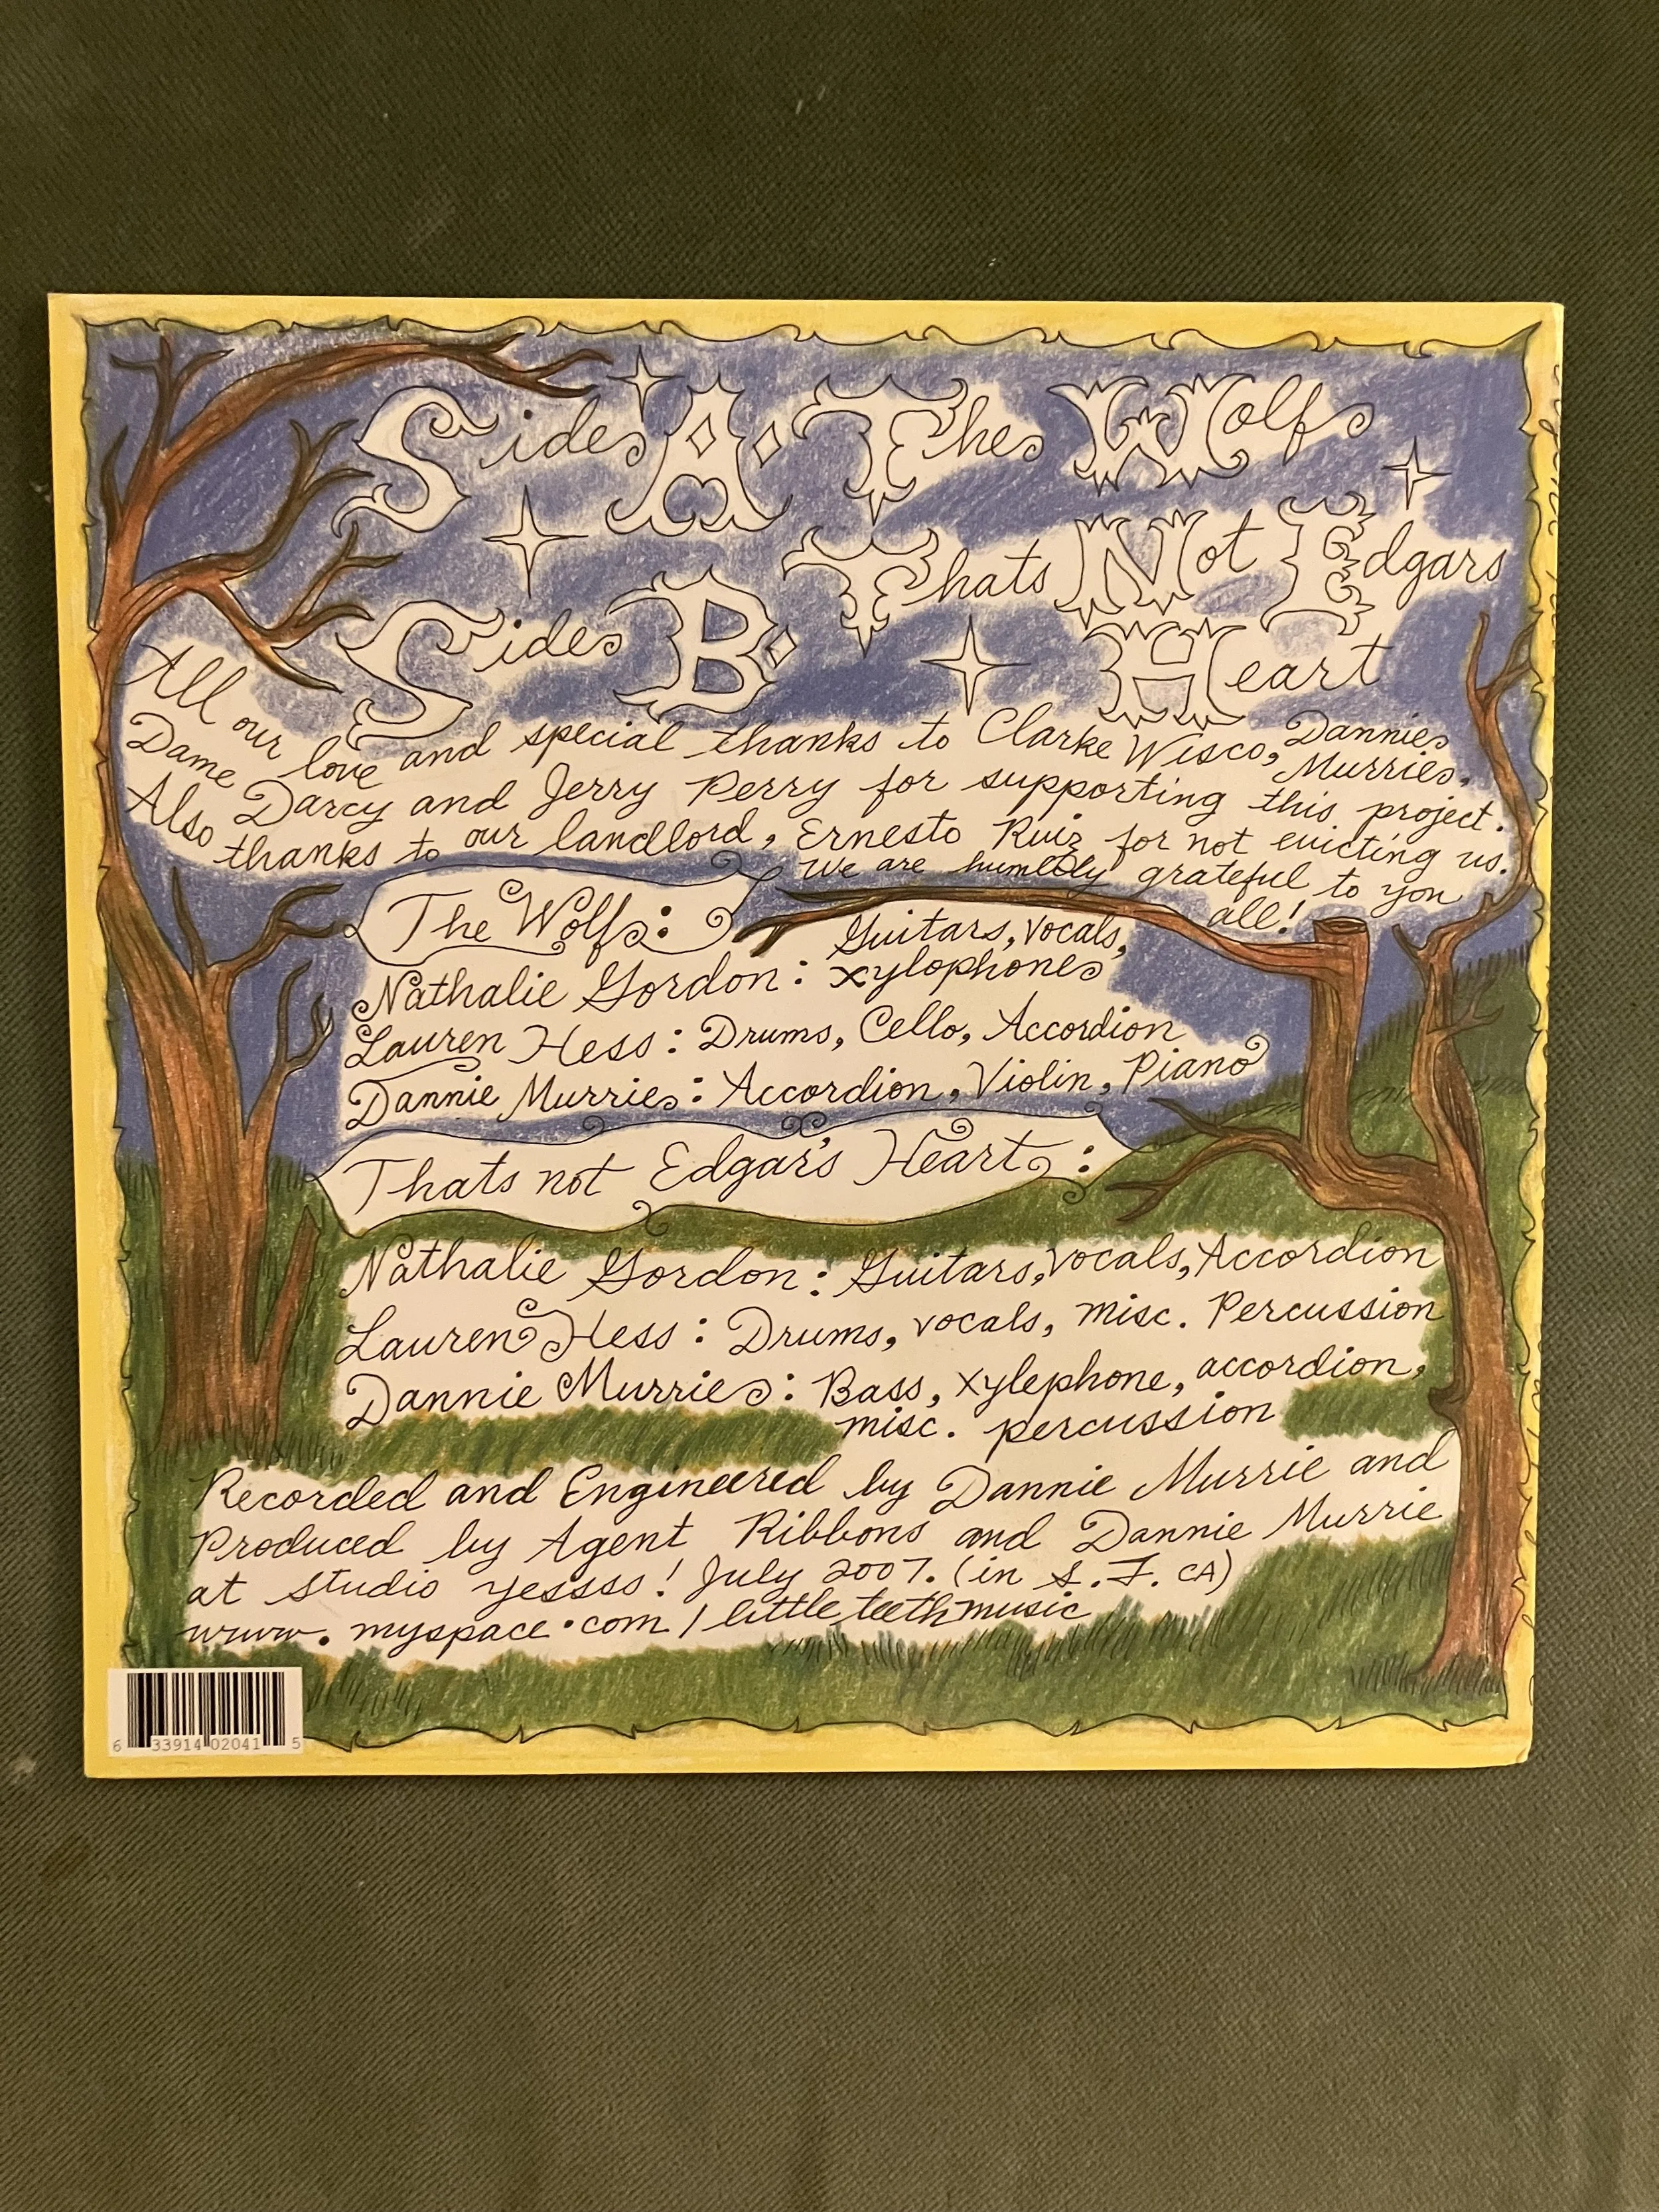 Side A. The Wolf
Side B. Thats Not Edgars
Heart
All our love and special thanks to Clarke Wisco, Dannie Murrie,
Dame Darcy and Jerry Perry for supporting this project.
Also thanks to our landlord, Ernesto Ruiz for not evicting us.
We are humbly grateful to you
all!
The Wolf:
Nathalie Gordon: Guitars, vocals, xylophone
Lauren Hess: Drums, Cello, Accordion
Dannie Murrie: Accordion, Violin, Piano
Thats not Edgar's Heart:
Nathalie Gordon: Guitars, vocals, Accordion
Lauren Hess: Drums, vocals, misc. Percussion
Dannie Murrie: Bass, xylephone, accordion,
misc. percussion
Recorded and Engineered by Dannie Murrie and
Produced by Agent Ribbons and Dannie Murrie
at studio yessss! July 2007. (in S.F. CA)
www.myspace.com/littleteethmusic
6 33914 02041 5